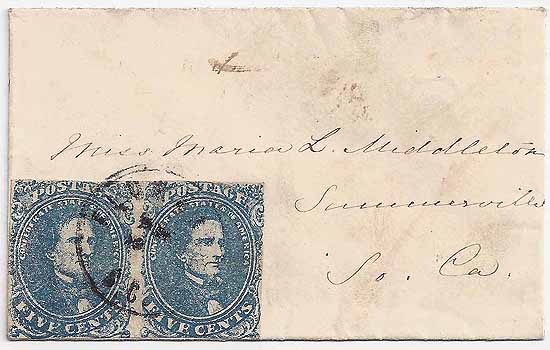 Miss Maria L. Middleton
Summerville
So. Ca.
POSTAGE POSTAGE
CONFEDERATE STATES OF AMERICA CONFEDERATE STATES OF AMERICA
FIVE CENTS FIVE CENTS